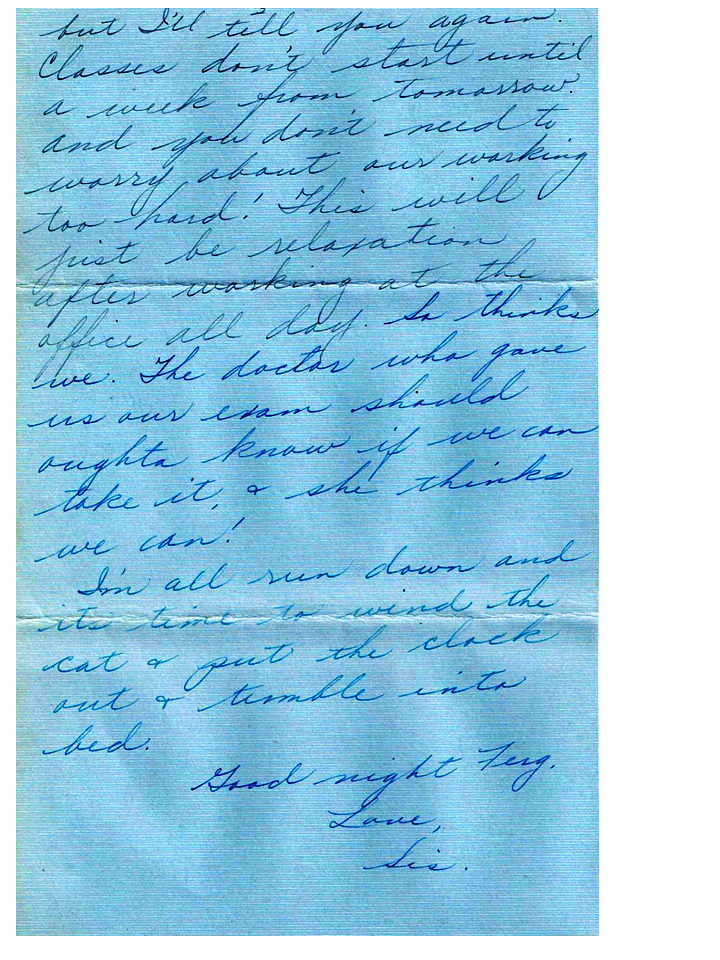 but I'll tell you again.
Classes don't start until
a week from tomorrow.
and you don't need to
worry about our working
too hard! This will
just be relaxation
after working at the
office all day. So thinks
we. The doctor who gave
us our exam should
oughta know if we can
take it, & she thinks
we can!
I'm all run down and
its time to wind the
cat & put the clock
out & tumble into
bed.
Good night Ferg.
Love,
Sis.